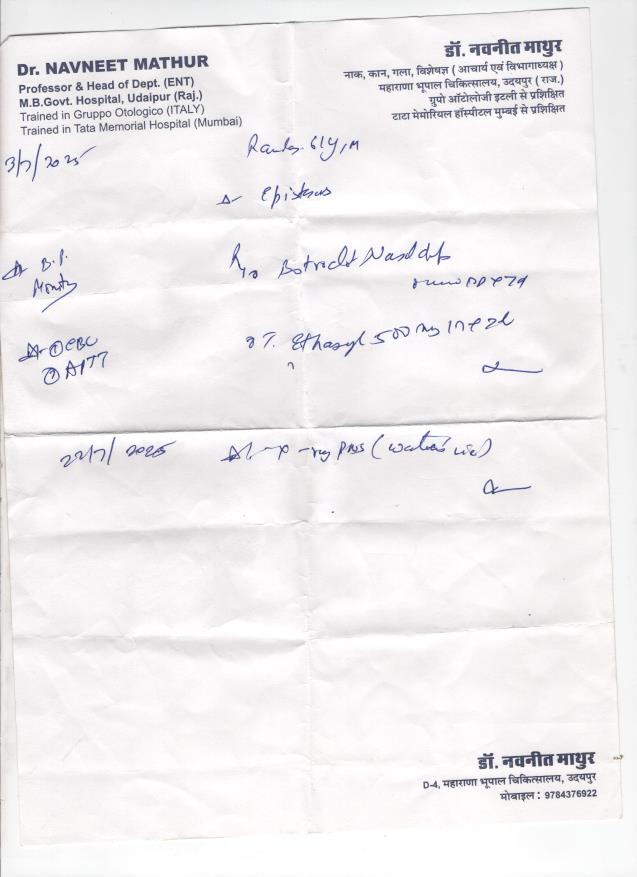 Dr. NAVNEET MATHUR
Professor & Head of Dept. (ENT)
M.B.Govt. Hospital, Udaipur (Raj.)
Trained in Gruppo Otologico (ITALY)
Trained in Tata Memorial Hospital (Mumbai)
डॉ. नवनीत माथुर
नाक, कान, गला, विशेषज्ञ ( आचार्य एवं विभागाध्यक्ष )
महाराणा भूपाल चिकित्सालय, उदयपुर ( राज.)
ग्रुपो ऑटोलोजी इटली से प्रशिक्षित
टाटा मेमोरियल हॉस्पीटल मुम्बई से प्रशिक्षित
3/7/2025
61Y,M
B.P.
Nasal
① CBC
② APTT
T. Ethasyl 500 mg
22/7/2025
x-ray PNS (water's
डॉ. नवनीत माथुर
D-4, महाराणा भूपाल चिकित्सालय, उदयपुर
मोबाइल : 9784376922